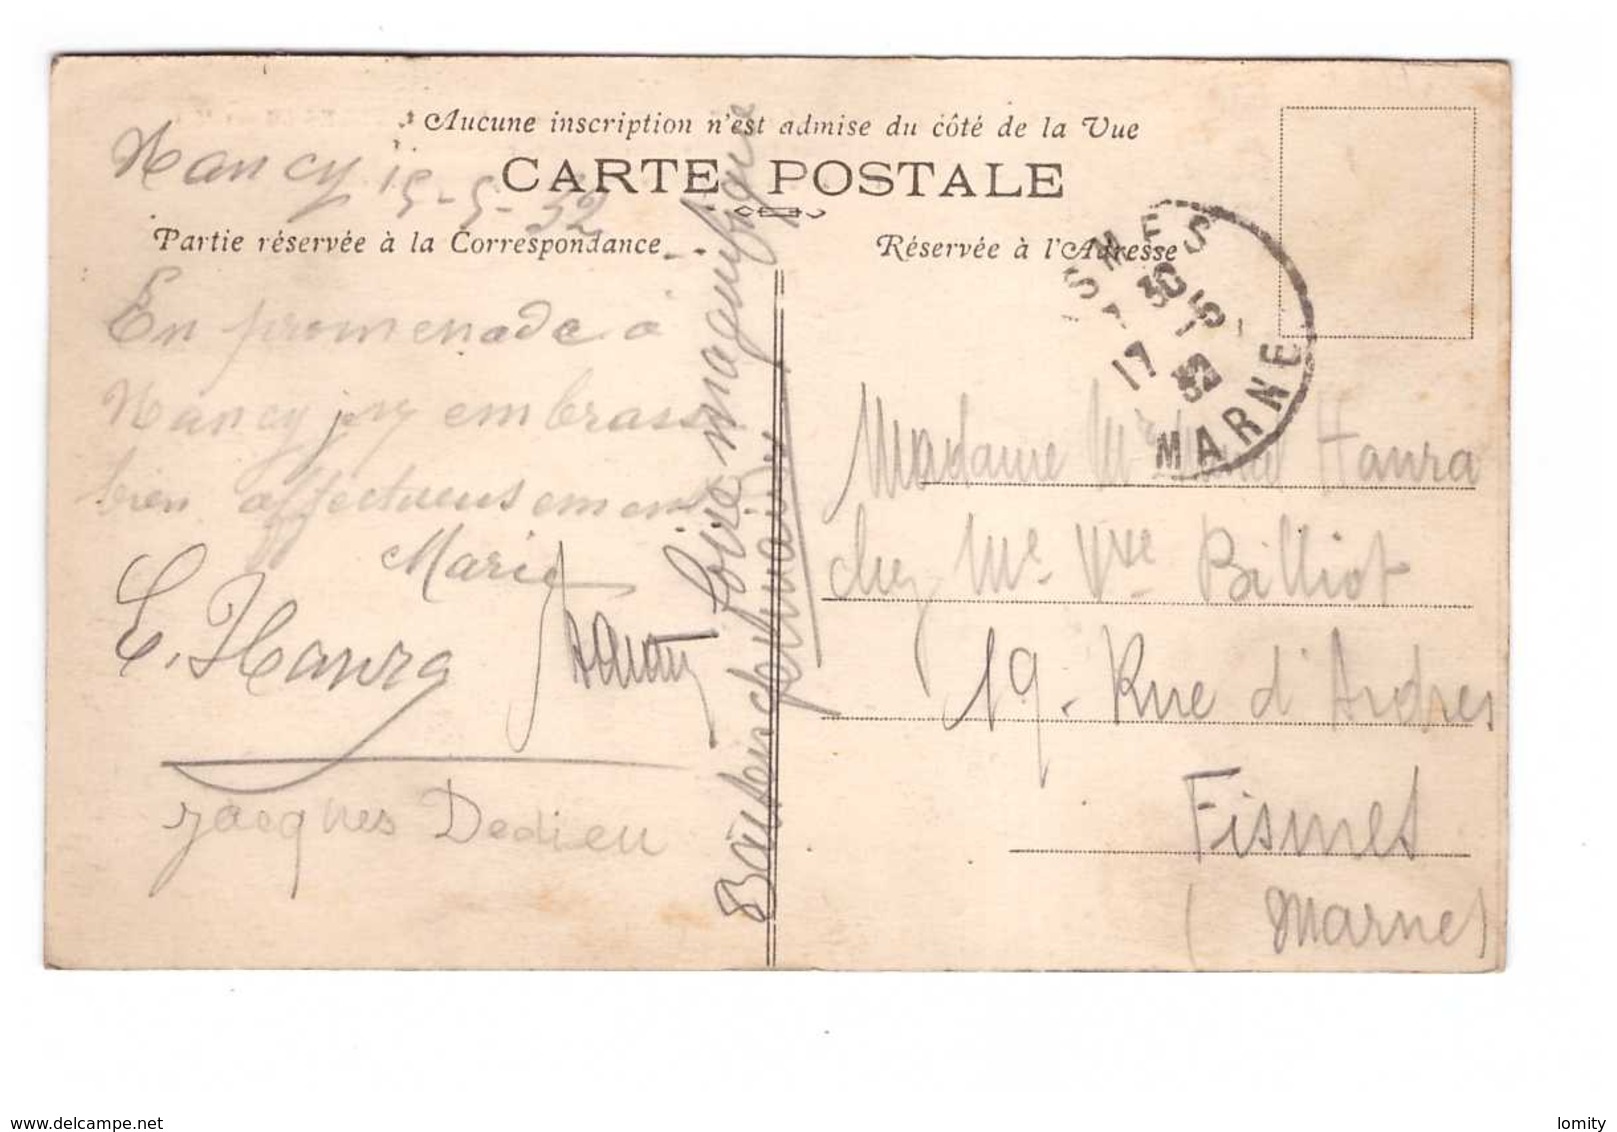 Aucune inscription n'est admise du côté de la Vue
CARTE POSTALE
Partie réservée à la Correspondance
Réservée à l'Adresse
Nancy 15-5-32
En promenade à
Nancy j'y embrasse
bien affectueusement
Marie
E. Hanra
Jacques Dedieu
Foire magnifique
Beau temps
ISMES
7 30
17 - 5
32
MARNE
Madame Hanra
chez Me Vve Billiot
19. Rue d'Ardres
Fismes
(Marne)
www.delcampe.net
lomity